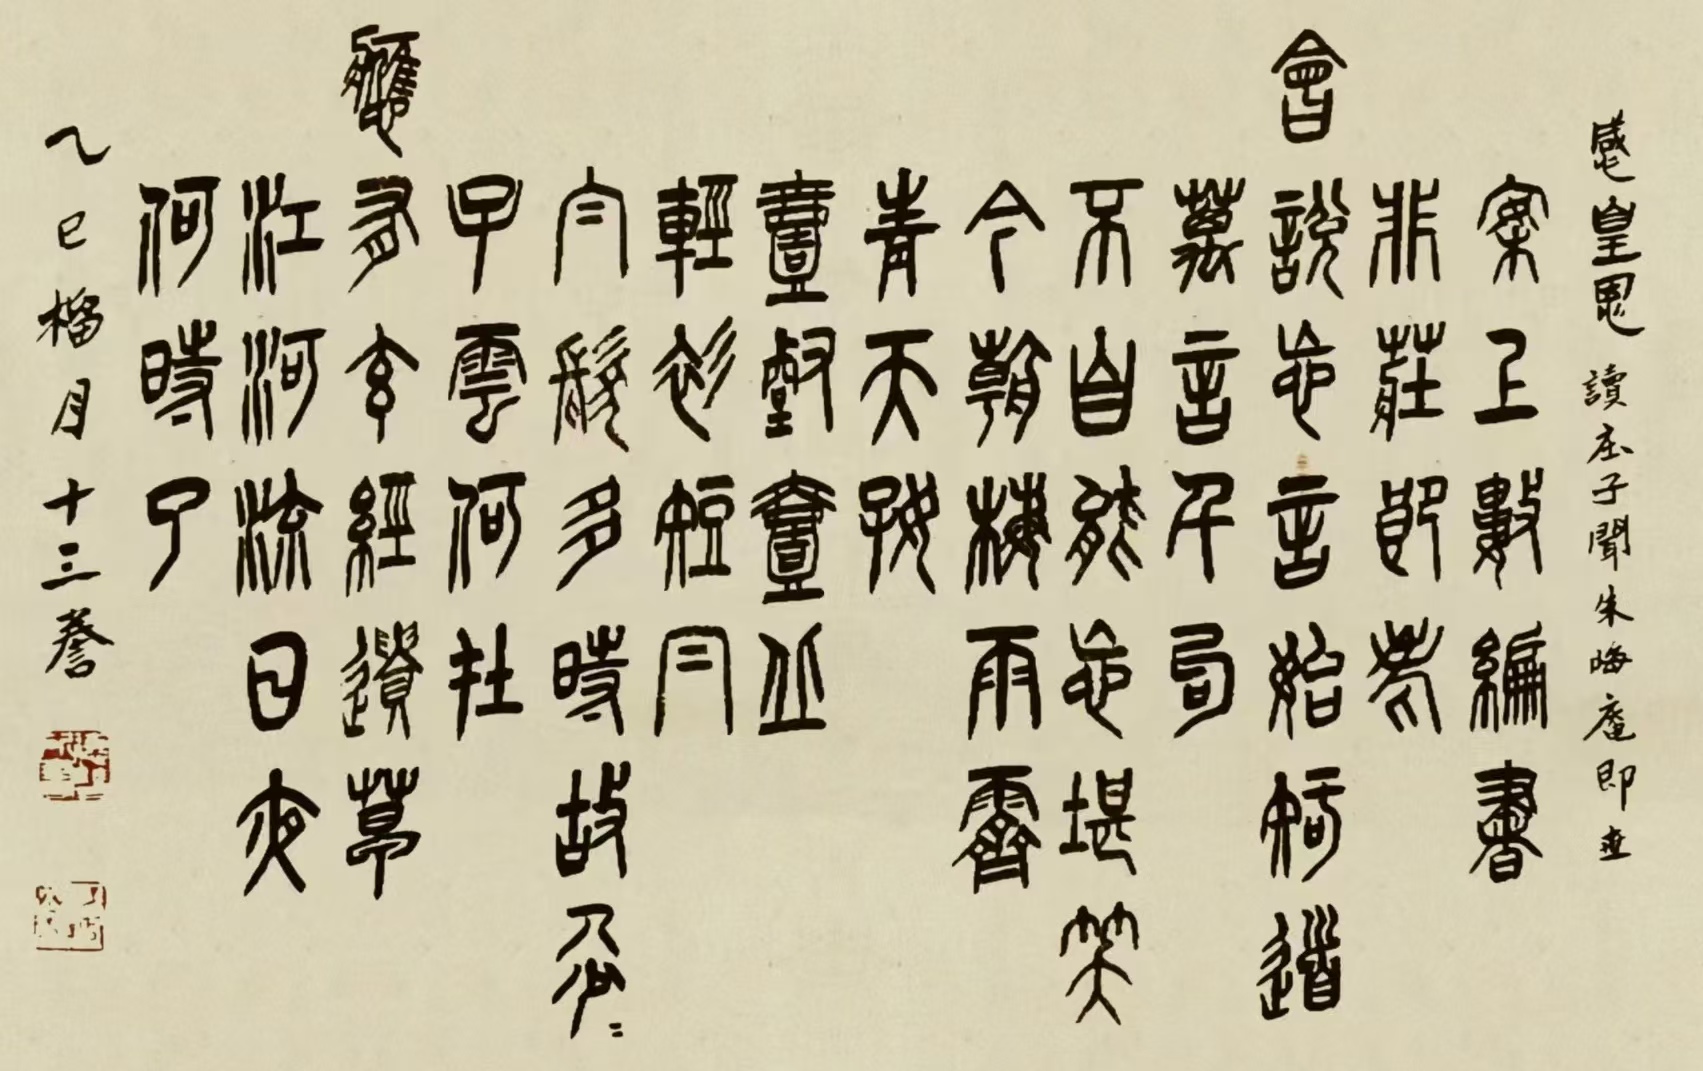 感皇恩 讀庄子聞朱晦庵即世
案上數編書
非莊即老
會說忘言始知道
萬言千句
不自能忘堪笑
今朝梅雨霽
青天好
壹壑壹丘
輕衫短帽
白髮多時故人少
子雲何在
應有玄經遺草
江河流日夜
何時了
乙巳榴月十三